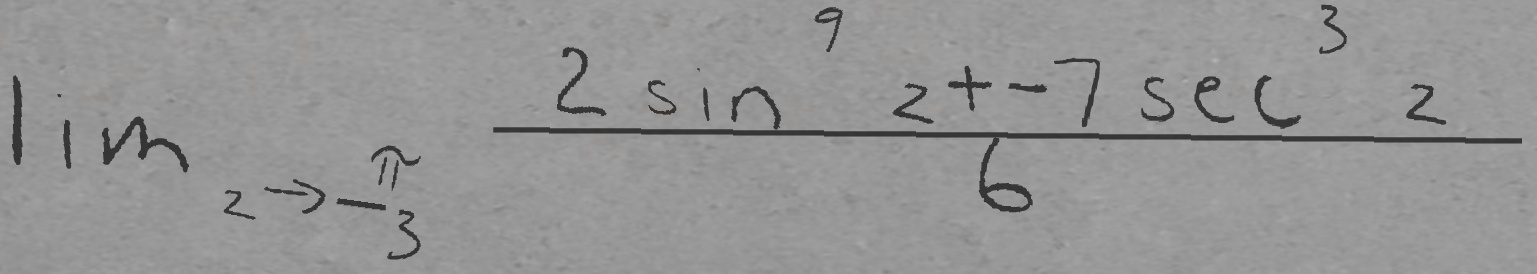 \lim_{z \to \frac{\pi}{3}} \frac{2 \sin^9 z + -7 \sec^3 z}{6}